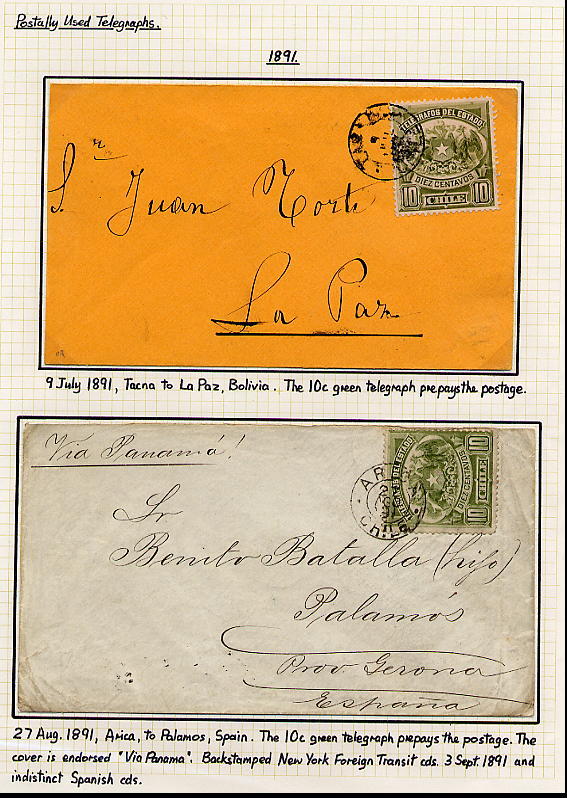 Postally Used Telegraphs.
1891.
TELEGRAFOS DEL ESTADO
DIEZ CENTAVOS
10 CHILE 10
Sr
Juan
La Paz
9 July 1891, Tacna to La Paz, Bolivia. The 10c green telegraph prepays the postage.
Via Panamá!
TELEGRAFOS DEL ESTADO
DIEZ CENTAVOS
10 CHILE 10
CHILE
Sr
Benito Batalla (hijo)
Palamós
Prov Gerona
España
27 Aug. 1891, Arica, to Palamos, Spain. The 10c green telegraph prepays the postage. The
cover is endorsed "Via Panama". Backstamped New York Foreign Transit cds. 3 Sept. 1891 and
indistinct Spanish cds.